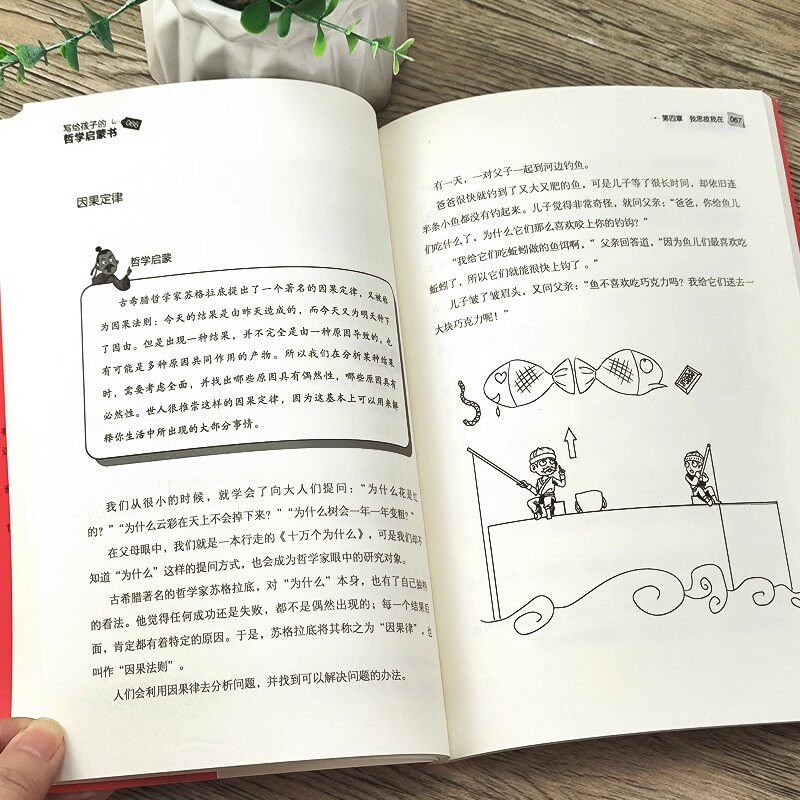 写给孩子的
哲学启蒙书
066
因果定律
哲学启蒙
古希腊哲学家苏格拉底提出了一个著名的因果定律，又被称
为因果法则：今天的结果是由昨天造成的，而今天又为明天种下
了因由。但是出现一种结果，并不完全是由一种原因导致的，也
有可能是多种原因共同作用的产物。所以我们在分析某种结果
时，需要考虑全面，并找出哪些原因具有偶然性，哪些原因具有
必然性。世人很推崇这样的因果定律，因为这基本上可以用来解
释你生活中所出现的大部分事情。
我们从很小的时候，就学会了向大人们提问：“为什么花是红
的？”“为什么云彩在天上不会掉下来？”“为什么树会一年一年变粗？”
在父母眼中，我们就是一本行走的《十万个为什么》，可是我们却不
知道“为什么”这样的提问方式，也会成为哲学家眼中的研究对象。
古希腊著名的哲学家苏格拉底，对“为什么”本身，也有了自己独特
的看法。他觉得任何成功还是失败，都不是偶然出现的；每一个结果后
面，肯定都有着特定的原因。于是，苏格拉底将其称之为“因果律”，也
叫作“因果法则”。
人们会利用因果律去分析问题，并找到可以解决问题的办法。
第四章 我思故我在 067
有一天，一对父子一起到河边钓鱼。
爸爸很快就钓到了又大又肥的鱼，可是儿子等了很长时间，却依旧连
半条小鱼都没有钓起来。儿子觉得非常奇怪，就问父亲：“爸爸，你给鱼儿
们吃什么了，为什么它们那么喜欢咬上你的钓钩？”
“我给它们吃蚯蚓做的鱼饵啊，”父亲回答道，“因为鱼儿们最喜欢吃
蚯蚓了，所以它们就能很快上钩了。”
儿子皱了皱眉头，又问父亲：“鱼不喜欢吃巧克力吗？我给它们送去一
大块巧克力呢！”